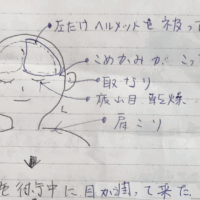 左だけヘルメットを被って
こめかみがこっ
取なり
疲れ目乾燥
肩こり
中に目が潤って来た